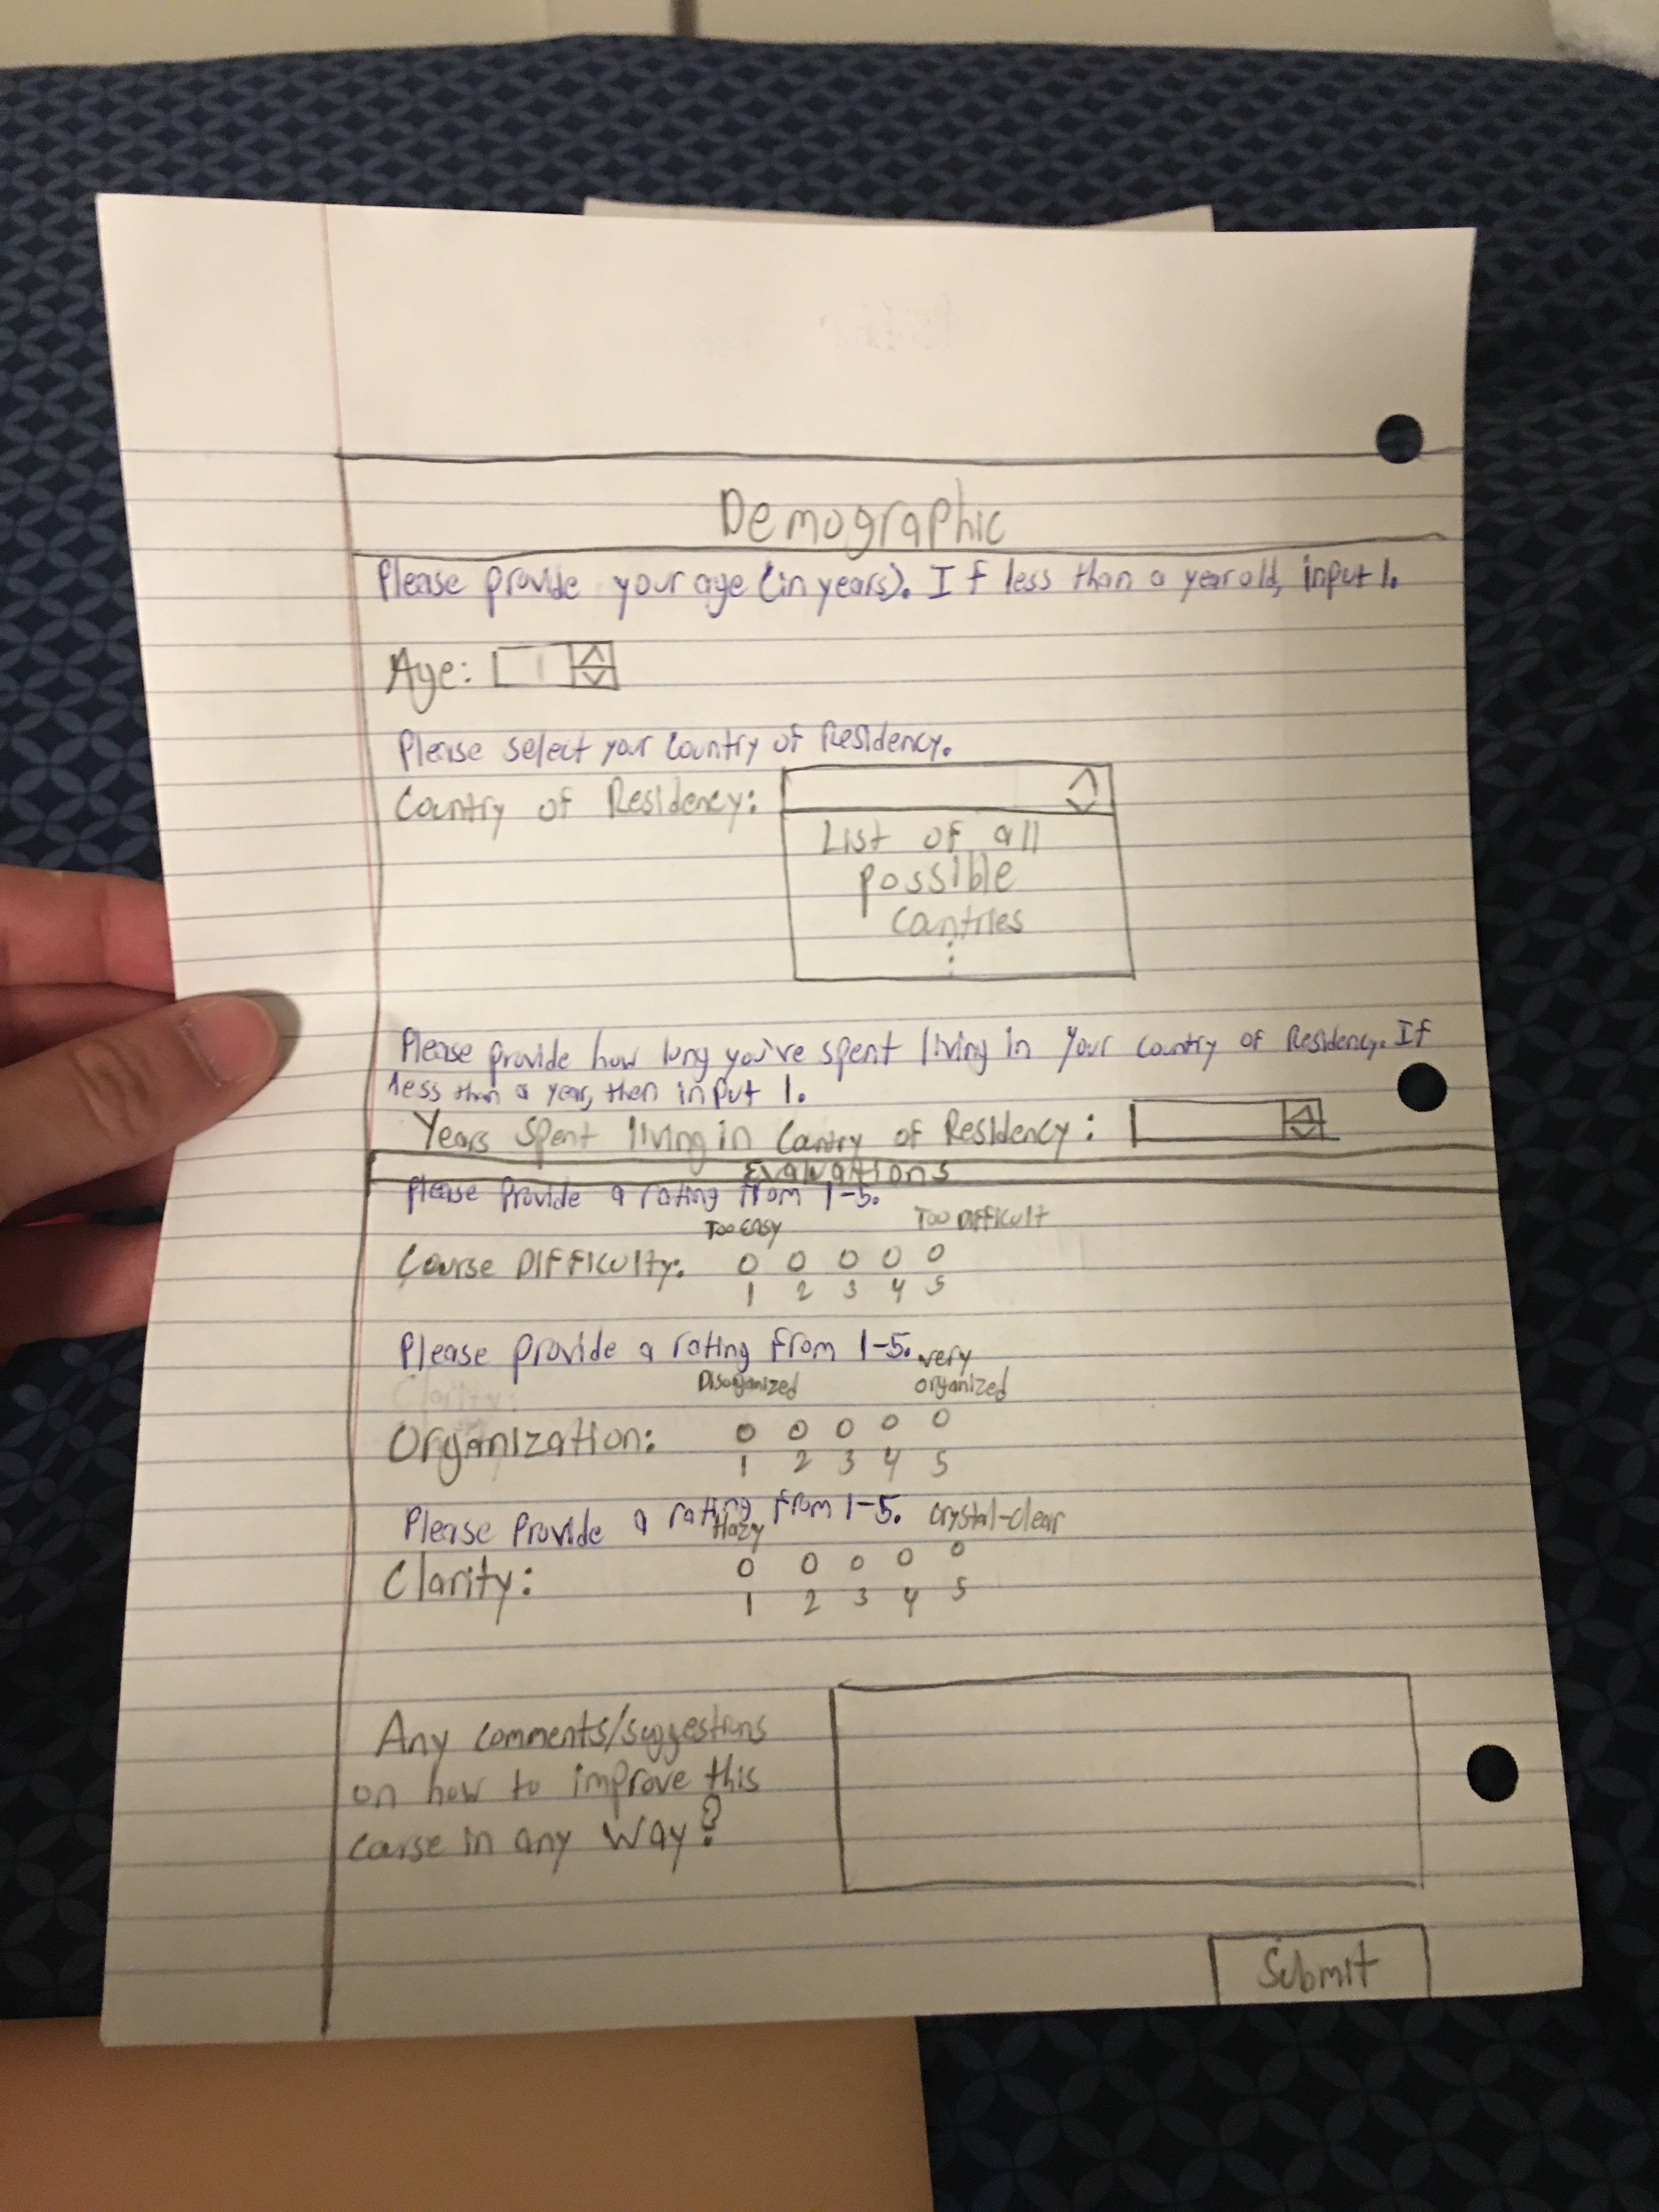 Demographic
Please provide your age (in years). If less than a year old, input 1.
Age: 1
Please select your Country of Residency.
Country of Residency:
List of all
possible
Countries
Please provide how long you've spent living in your country of Residency. If
less than a year, then input 1.
Years spent living in Country of Residency:
Evaluations
Please provide a rating from 1-5.
Too easy Too Difficult
Course Difficulty:
1 2 3 4 5
Please provide a rating from 1-5.
Disorganized very organized
Clarity:
Organization:
1 2 3 4 5
Please Provide a rating from 1-5.
Hazy Crystal-clear
Clarity:
1 2 3 4 5
Any comments/suggestions
on how to improve this
course in any way?
Submit